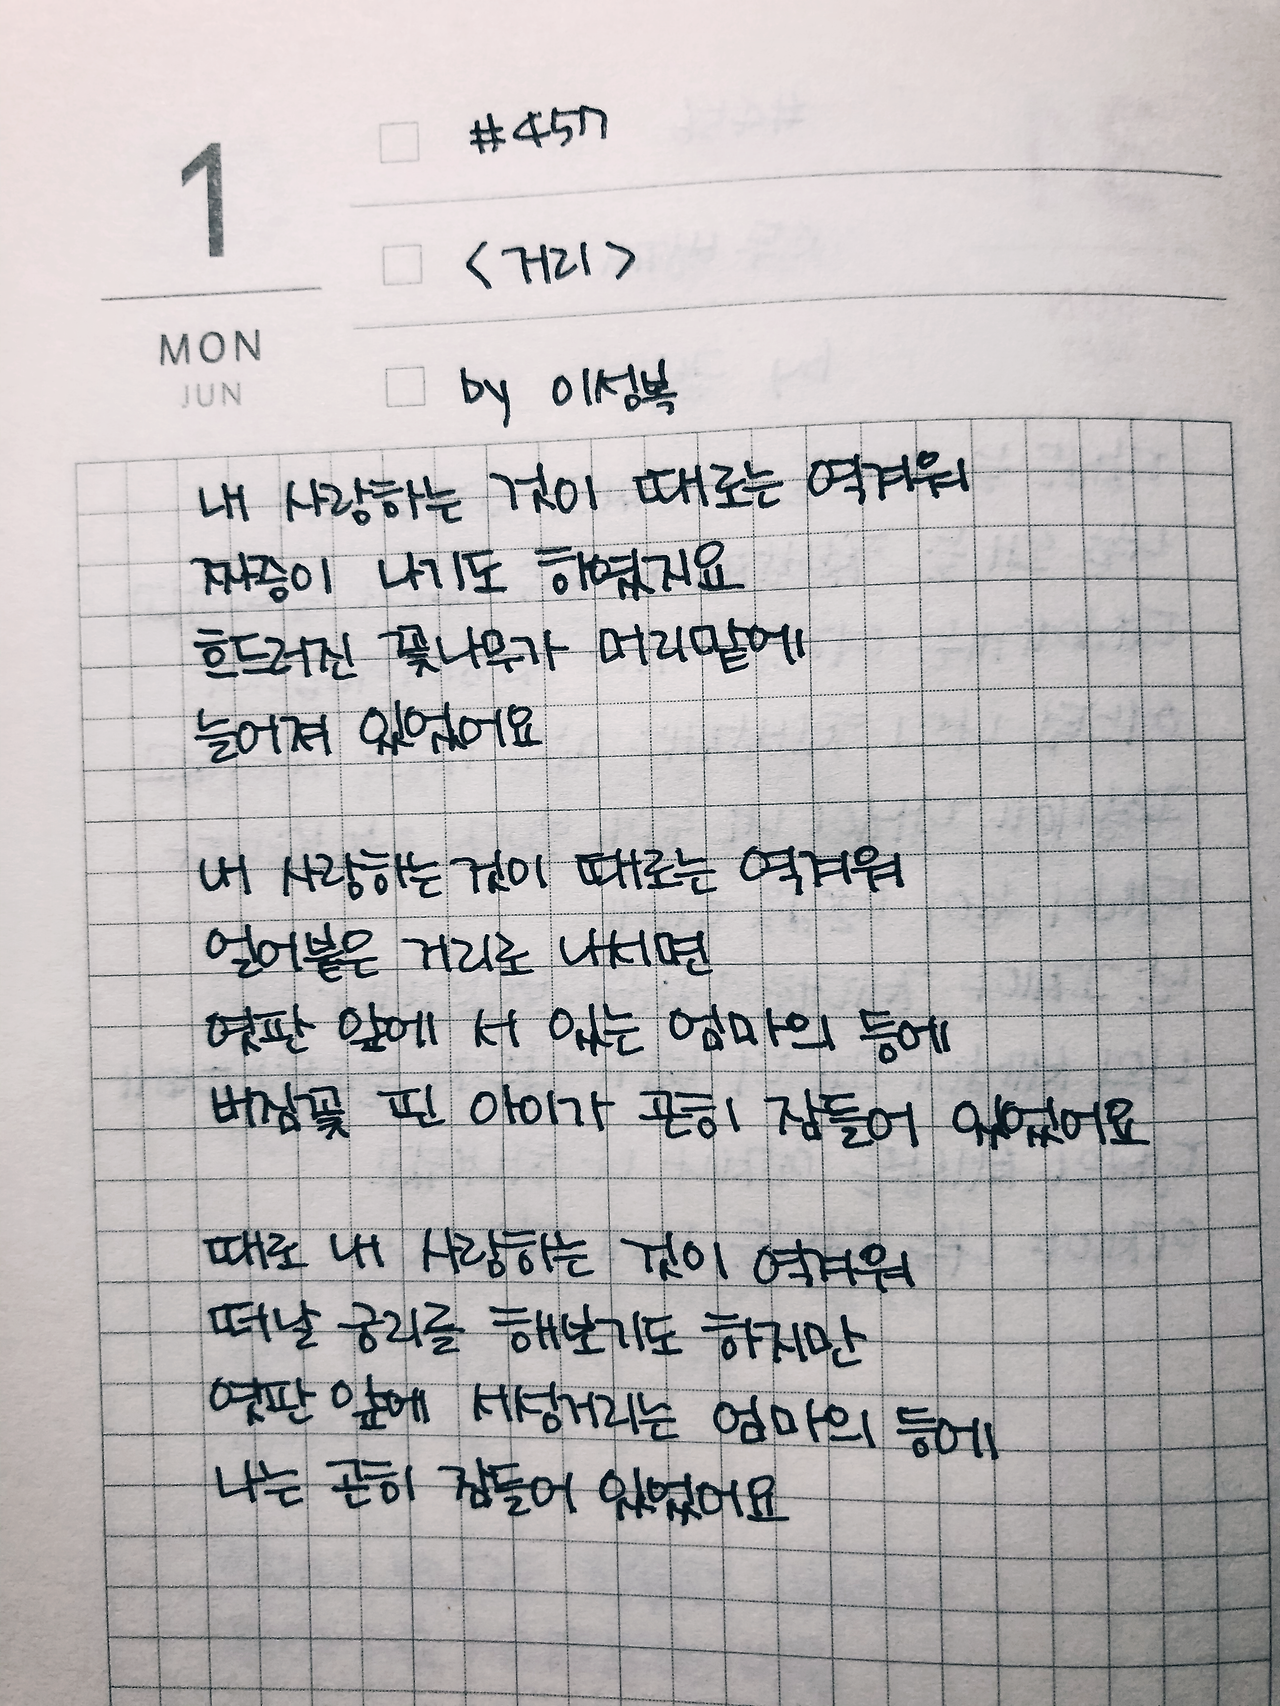 1
MON
JUN
#457
<거리>
by 이성복
내 사랑하는 것이 때로는 역겨워
짜증이 나기도 하였지요
흐드러진 꽃나무가 머리맡에
늘어져 있었어요
내 사랑하는 것이 때로는 역겨워
얼어붙은 거리로 나서면
엿판 앞에 서 있는 엄마의 등에
버짐꽃 핀 아이가 곤히 잠들어 있었어요
때로 내 사랑하는 것이 역겨워
떠날 궁리를 해보기도 하지만
엿판 앞에 서성거리는 엄마의 등에
나는 곤히 잠들어 있었어요